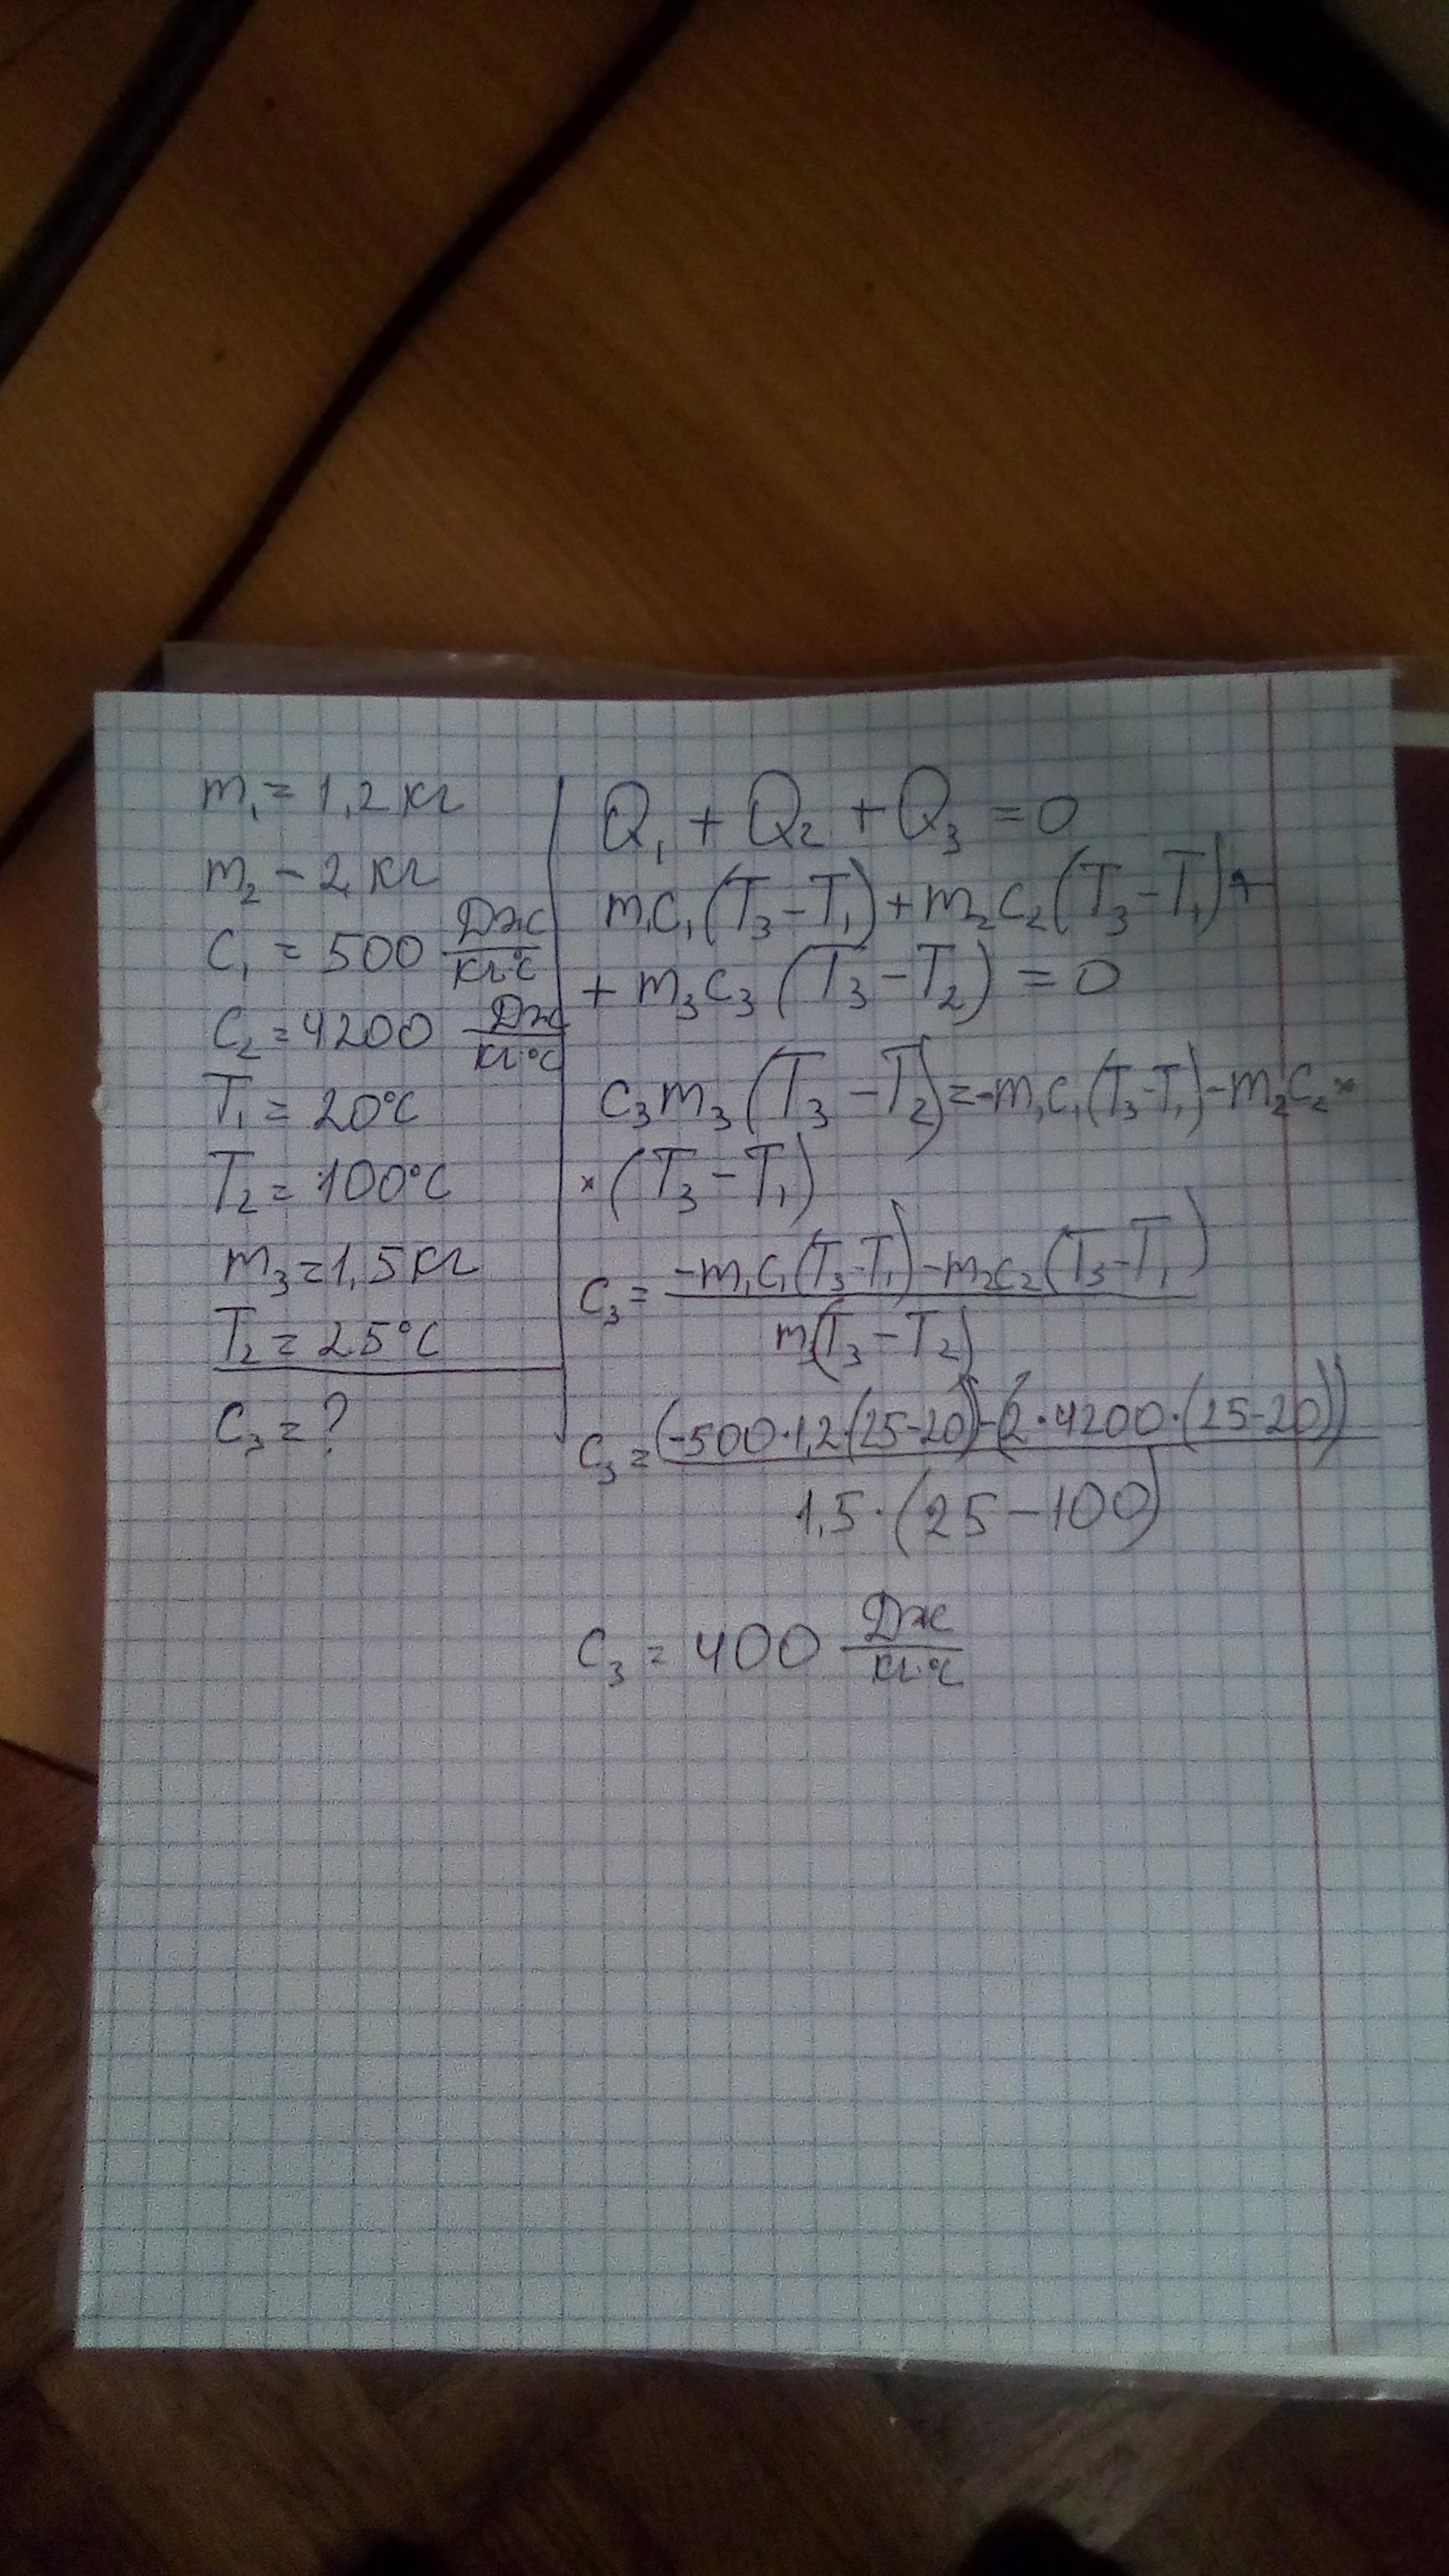 m₁ = 1,2 кг
m₂ - 2 кг
c₁ = 500 Дж/кг·°C
c₂ = 4200 Дж/кг·°C
T₁ = 20°C
T₂ = 100°C
m₃ = 1,5 кг
T₂ = 25°C
c₃ = ?
Q₁ + Q₂ + Q₃ = 0
m₁c₁(T₃-T₁)+m₂c₂(T₃-T₁)+
+ m₃c₃(T₃-T₂) = 0
c₃m₃(T₃-T₂)=-m₁c₁(T₃-T₁)-m₂c₂×
×(T₃-T₁)
c₃ = -m₁c₁(T₃-T₁)-m₂c₂(T₃-T₁)
m₃(T₃-T₂)
c₃ = (-500·1,2·(25-20))-(2·4200·(25-20))
1,5·(25-100)
c₃ = 400 Дж/кг·°C